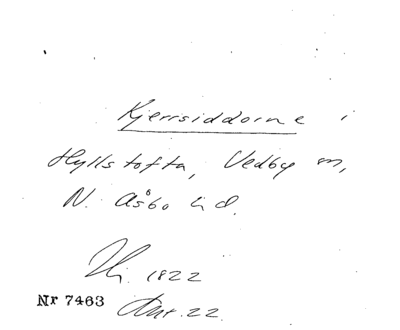 Kjerrsiddorne i
Hyllstofta, Vedby sn,
N. Åsbo hd.
1822
Nr 7463
22